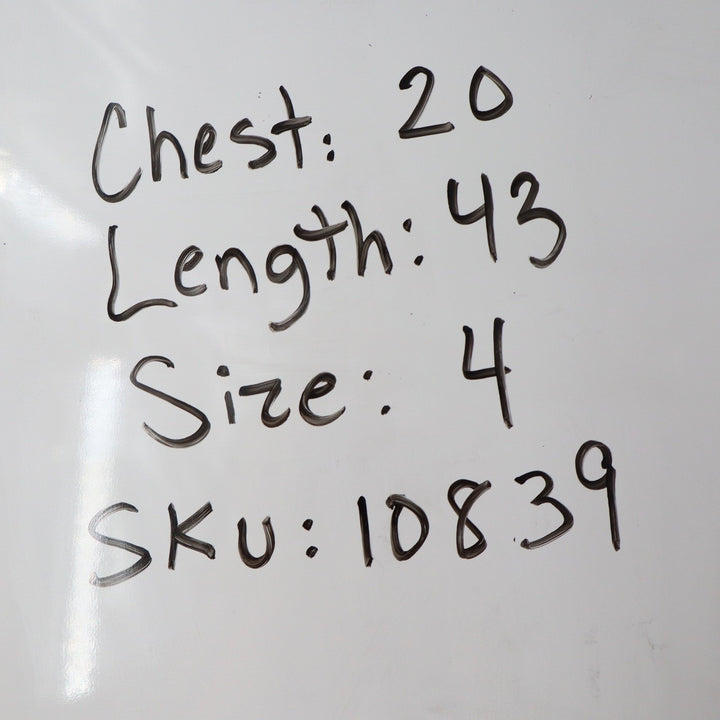 Chest: 20
Length: 43
Size: 4
SKU: 10839